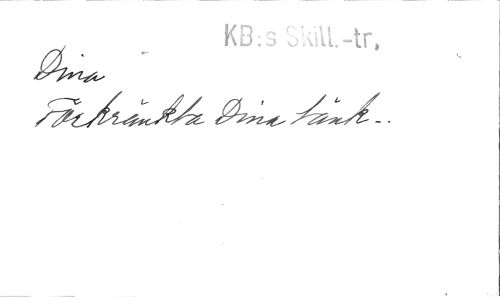 KB:s Skill.-tr,
Dina
Förkränkta Dina tänk..